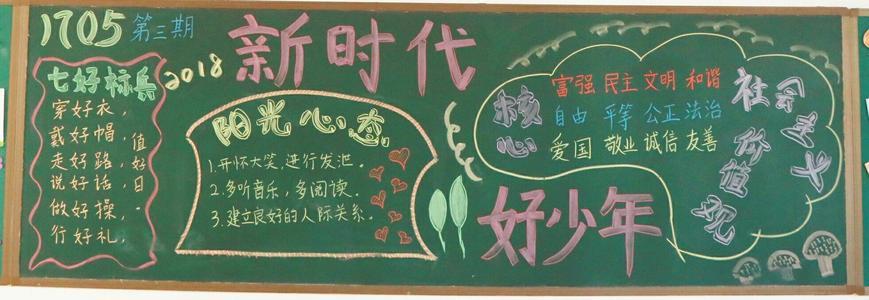 1705 第三期
2018
新时代
七好标兵
穿好衣，
戴好帽，
走好路，
说好话，
做好操，
行好礼，
值好日。
阳光心态
1.开怀大笑,进行发泄。
2.多听音乐，多阅读。
3.建立良好的人际关系。
核心
富强 民主 文明 和谐
自由 平等 公正 法治
爱国 敬业 诚信 友善
社会主义
价值观
好少年